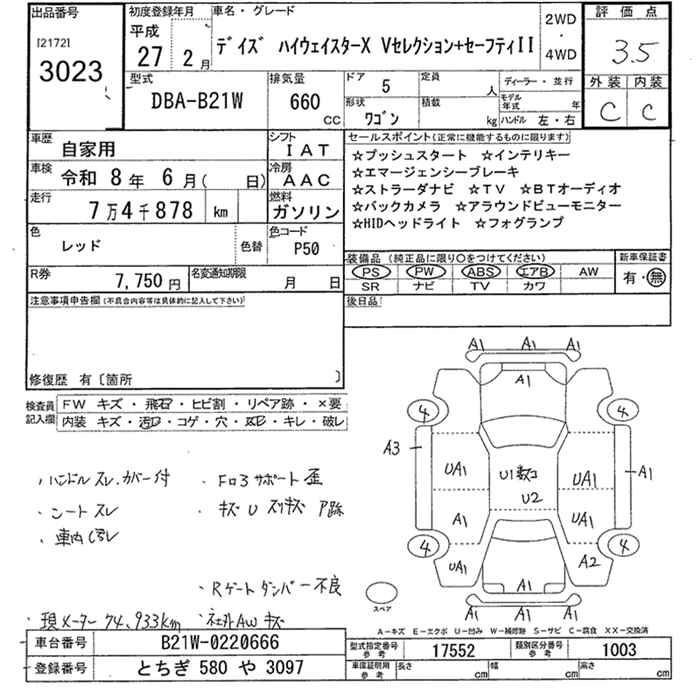 出品番号
[2172]
3023
初度登録年月
平成
27 2月
車名・グレード
デイズ ハイウェイスターX Vセレクション+セーフティII
2WD
・
4WD
評価点
3.5
外装 内装
C C
型式
DBA-B21W
排気量
660
CC
ドア 5
形状 ワゴン
定員 人
積載 kg
ディーラー・並行
モデル年式 年
ハンドル 左・右
車歴 自家用
シフト IAT
車検 令和 8年 6月( 日)
冷房 AAC
走行 7万4千878 km
燃料 ガソリン
色 レッド
色替
色コード P50
R券 7,750円
名変通知期限 月 日
セールスポイント(正常に機能するものに限ります)
☆プッシュスタート ☆インテリキー
☆エマージェンシーブレーキ
☆ストラーダナビ ☆TV ☆BTオーディオ
☆バックカメラ ☆アラウンドビューモニター
☆HIDヘッドライト ☆フォグランプ
装備品(純正品に限り○をつけてください)
PS PW ABS エアB AW
SR ナビ TV カワ
新車保証書
有・無
後日品
注意事項申告欄(不具合内容等は具体的に記入して下さい)
修復歴 有〔箇所 〕
検査員記入欄
FW キズ・飛石・ヒビ割・リペア跡・×要
内装 キズ・汚レ・コゲ・穴・凹・キレ・破レ
・ハンドル スレ.カバー付
・シート スレ
・車内 汚レ
・Fロ3サポート 歪
・キズ U スリキズ ア跡
・Rゲートダンパー不良
・現メーター 74,933km
・社外AW キズ
A1 A1 A1
A1
4 4
A3
UA1
U1数コ
U2
UA1
A1
A1
UA1
4 4
UA1
A2
A1
A1 A1 A1
スペア
A-キズ E-エクボ U-凹み W-補修跡 S-サビ C-腐食 XX-交換済
車台番号 B21W-0220666
登録番号 とちぎ 580 や 3097
型式指定番号 参考 17552
類別区分番号 参考 1003
車庫証明用 参考
長さ cm
幅 cm
高さ cm